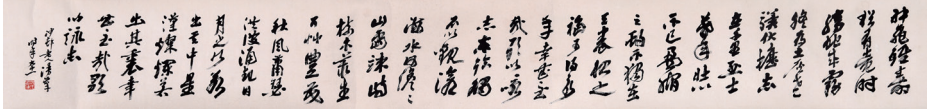 神龜雖壽
猶有竟時
騰蛇乘霧
終為土灰老
驥伏櫪志
在千里烈士
暮年壯心
不已盈縮
之期不獨在
天養怡之
福可得永
年幸甚至
哉歌以詠
志東臨碣
石以觀滄
海水何澹々
山島竦峙
樹木叢生
百草豐茂
秋風蕭瑟
洪波涌起日
月之行若
出其中星
漢燦爛若
出其裏幸
甚至哉歌
以詠志